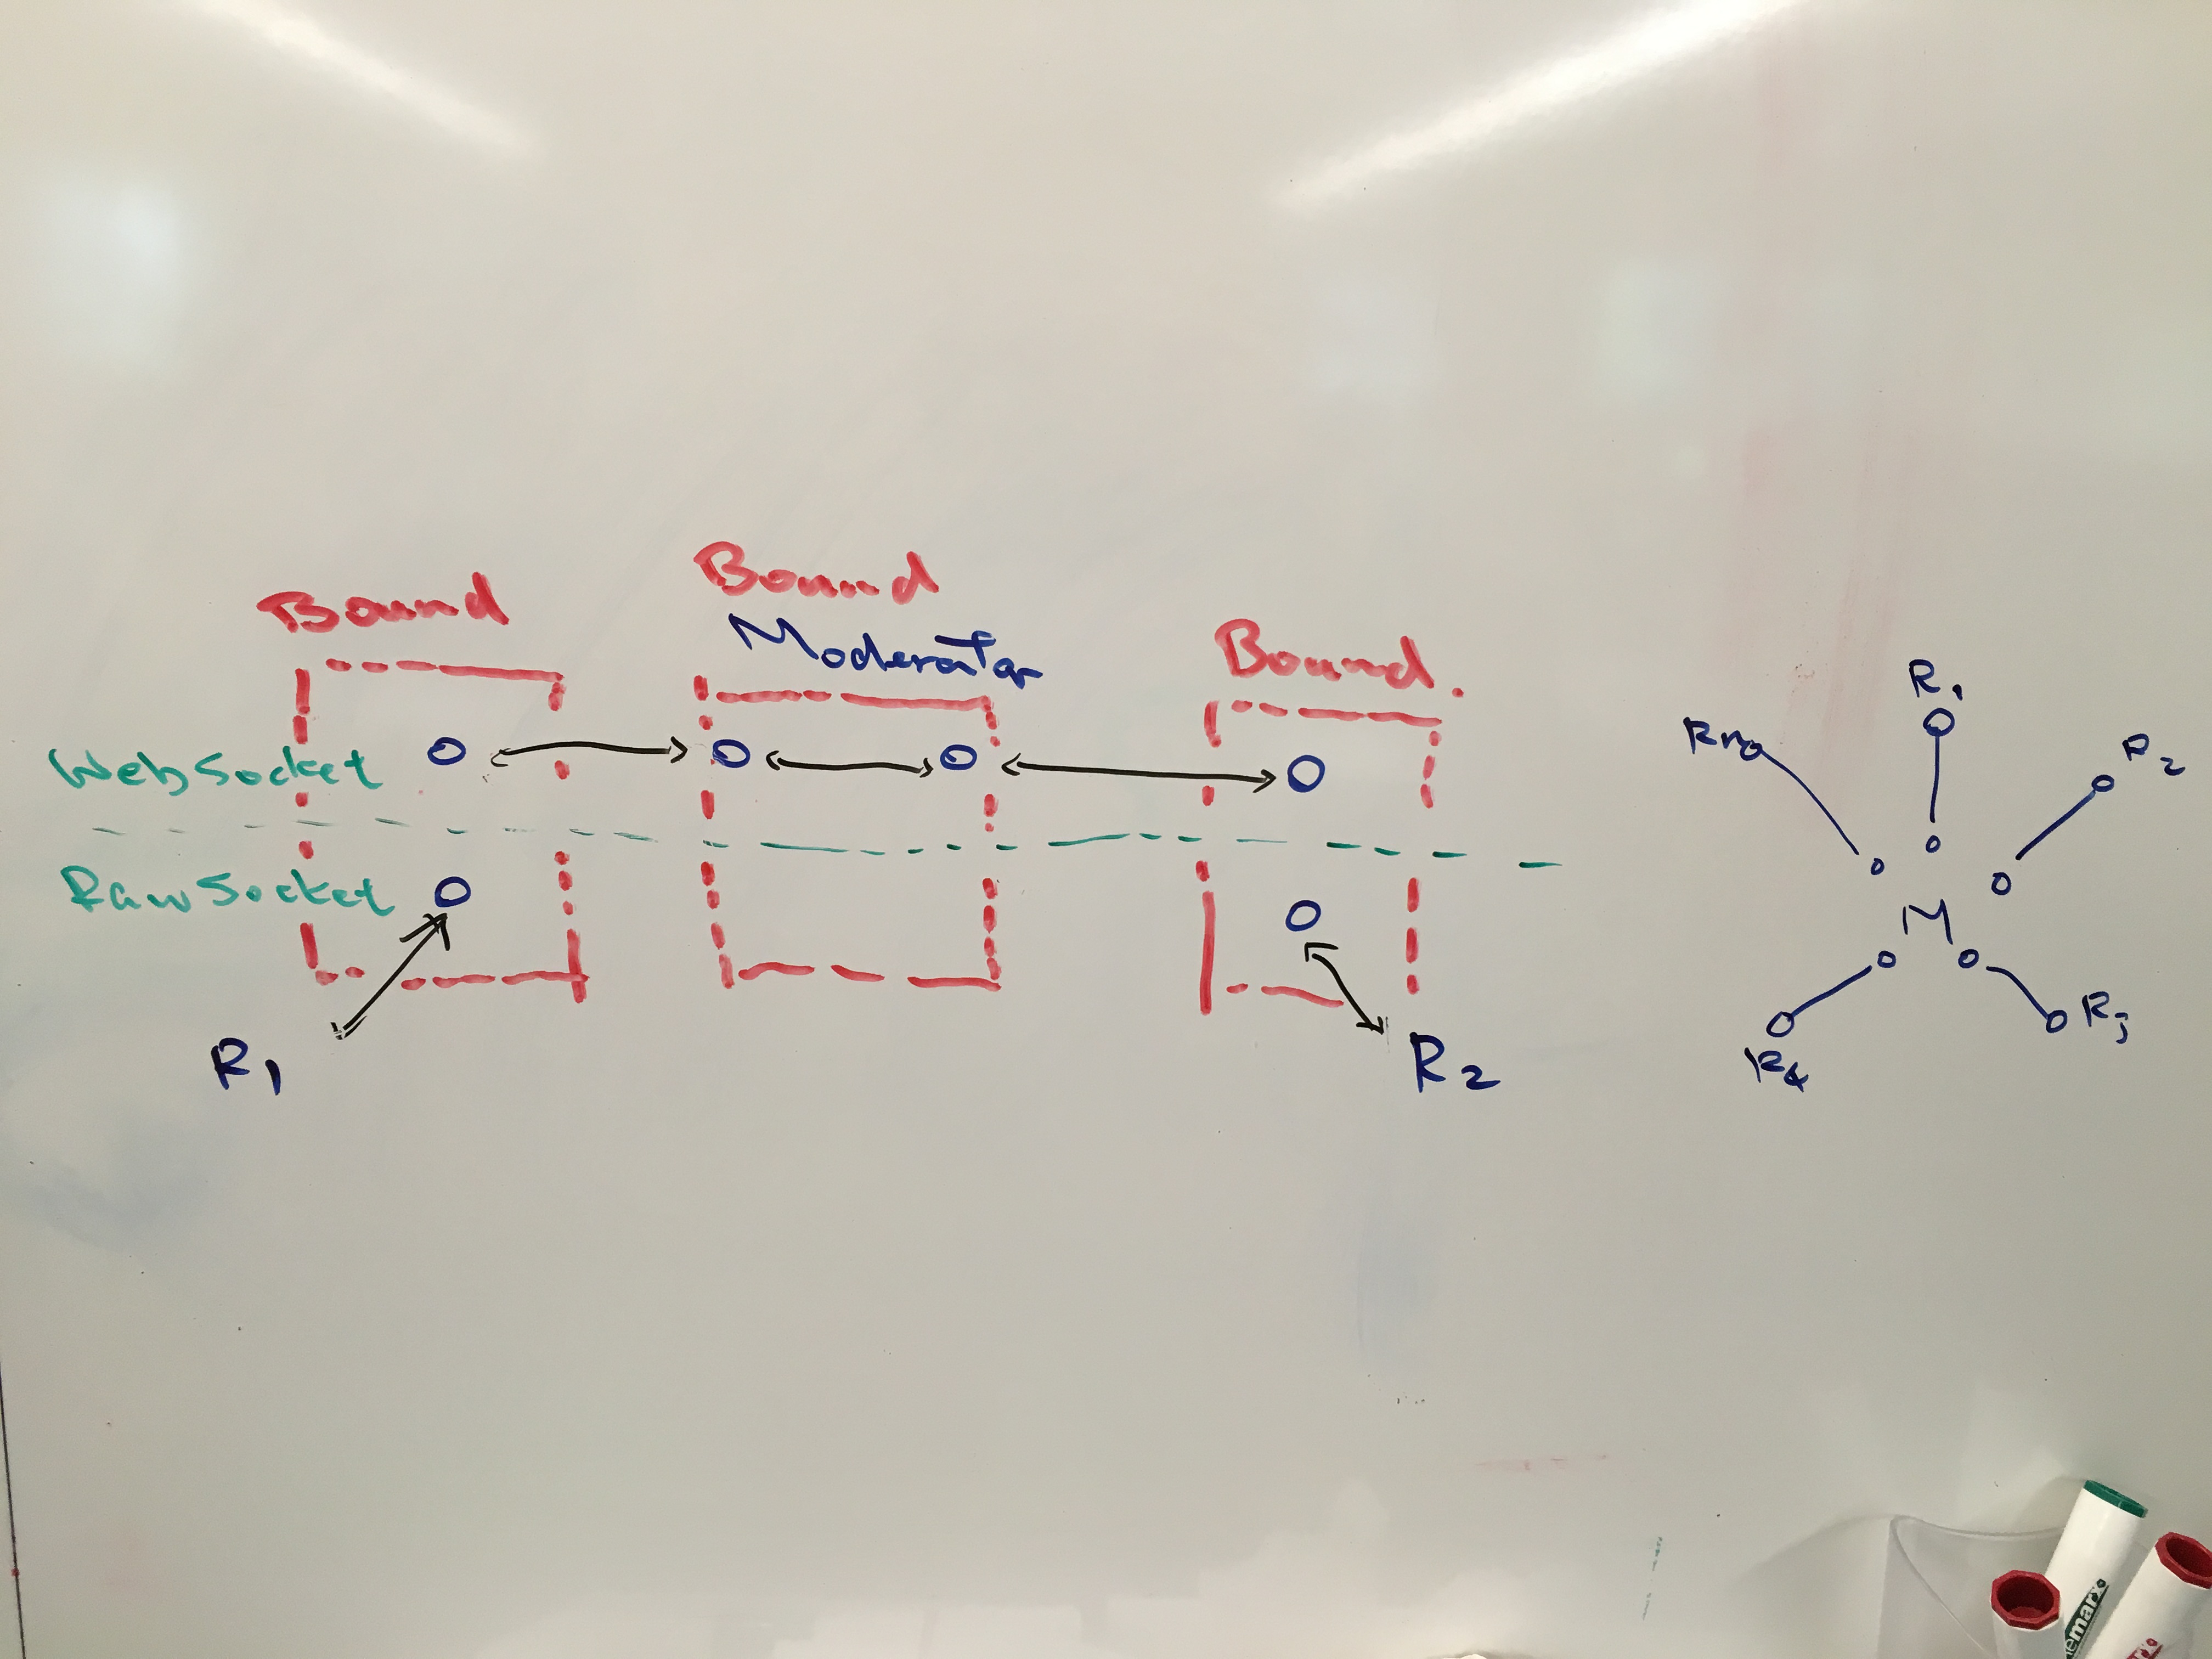 Bound
Bound
Moderator
Bound.
WebSocket
RawSocket
R1
R2
R1
R2
R3
R4
Rn
M